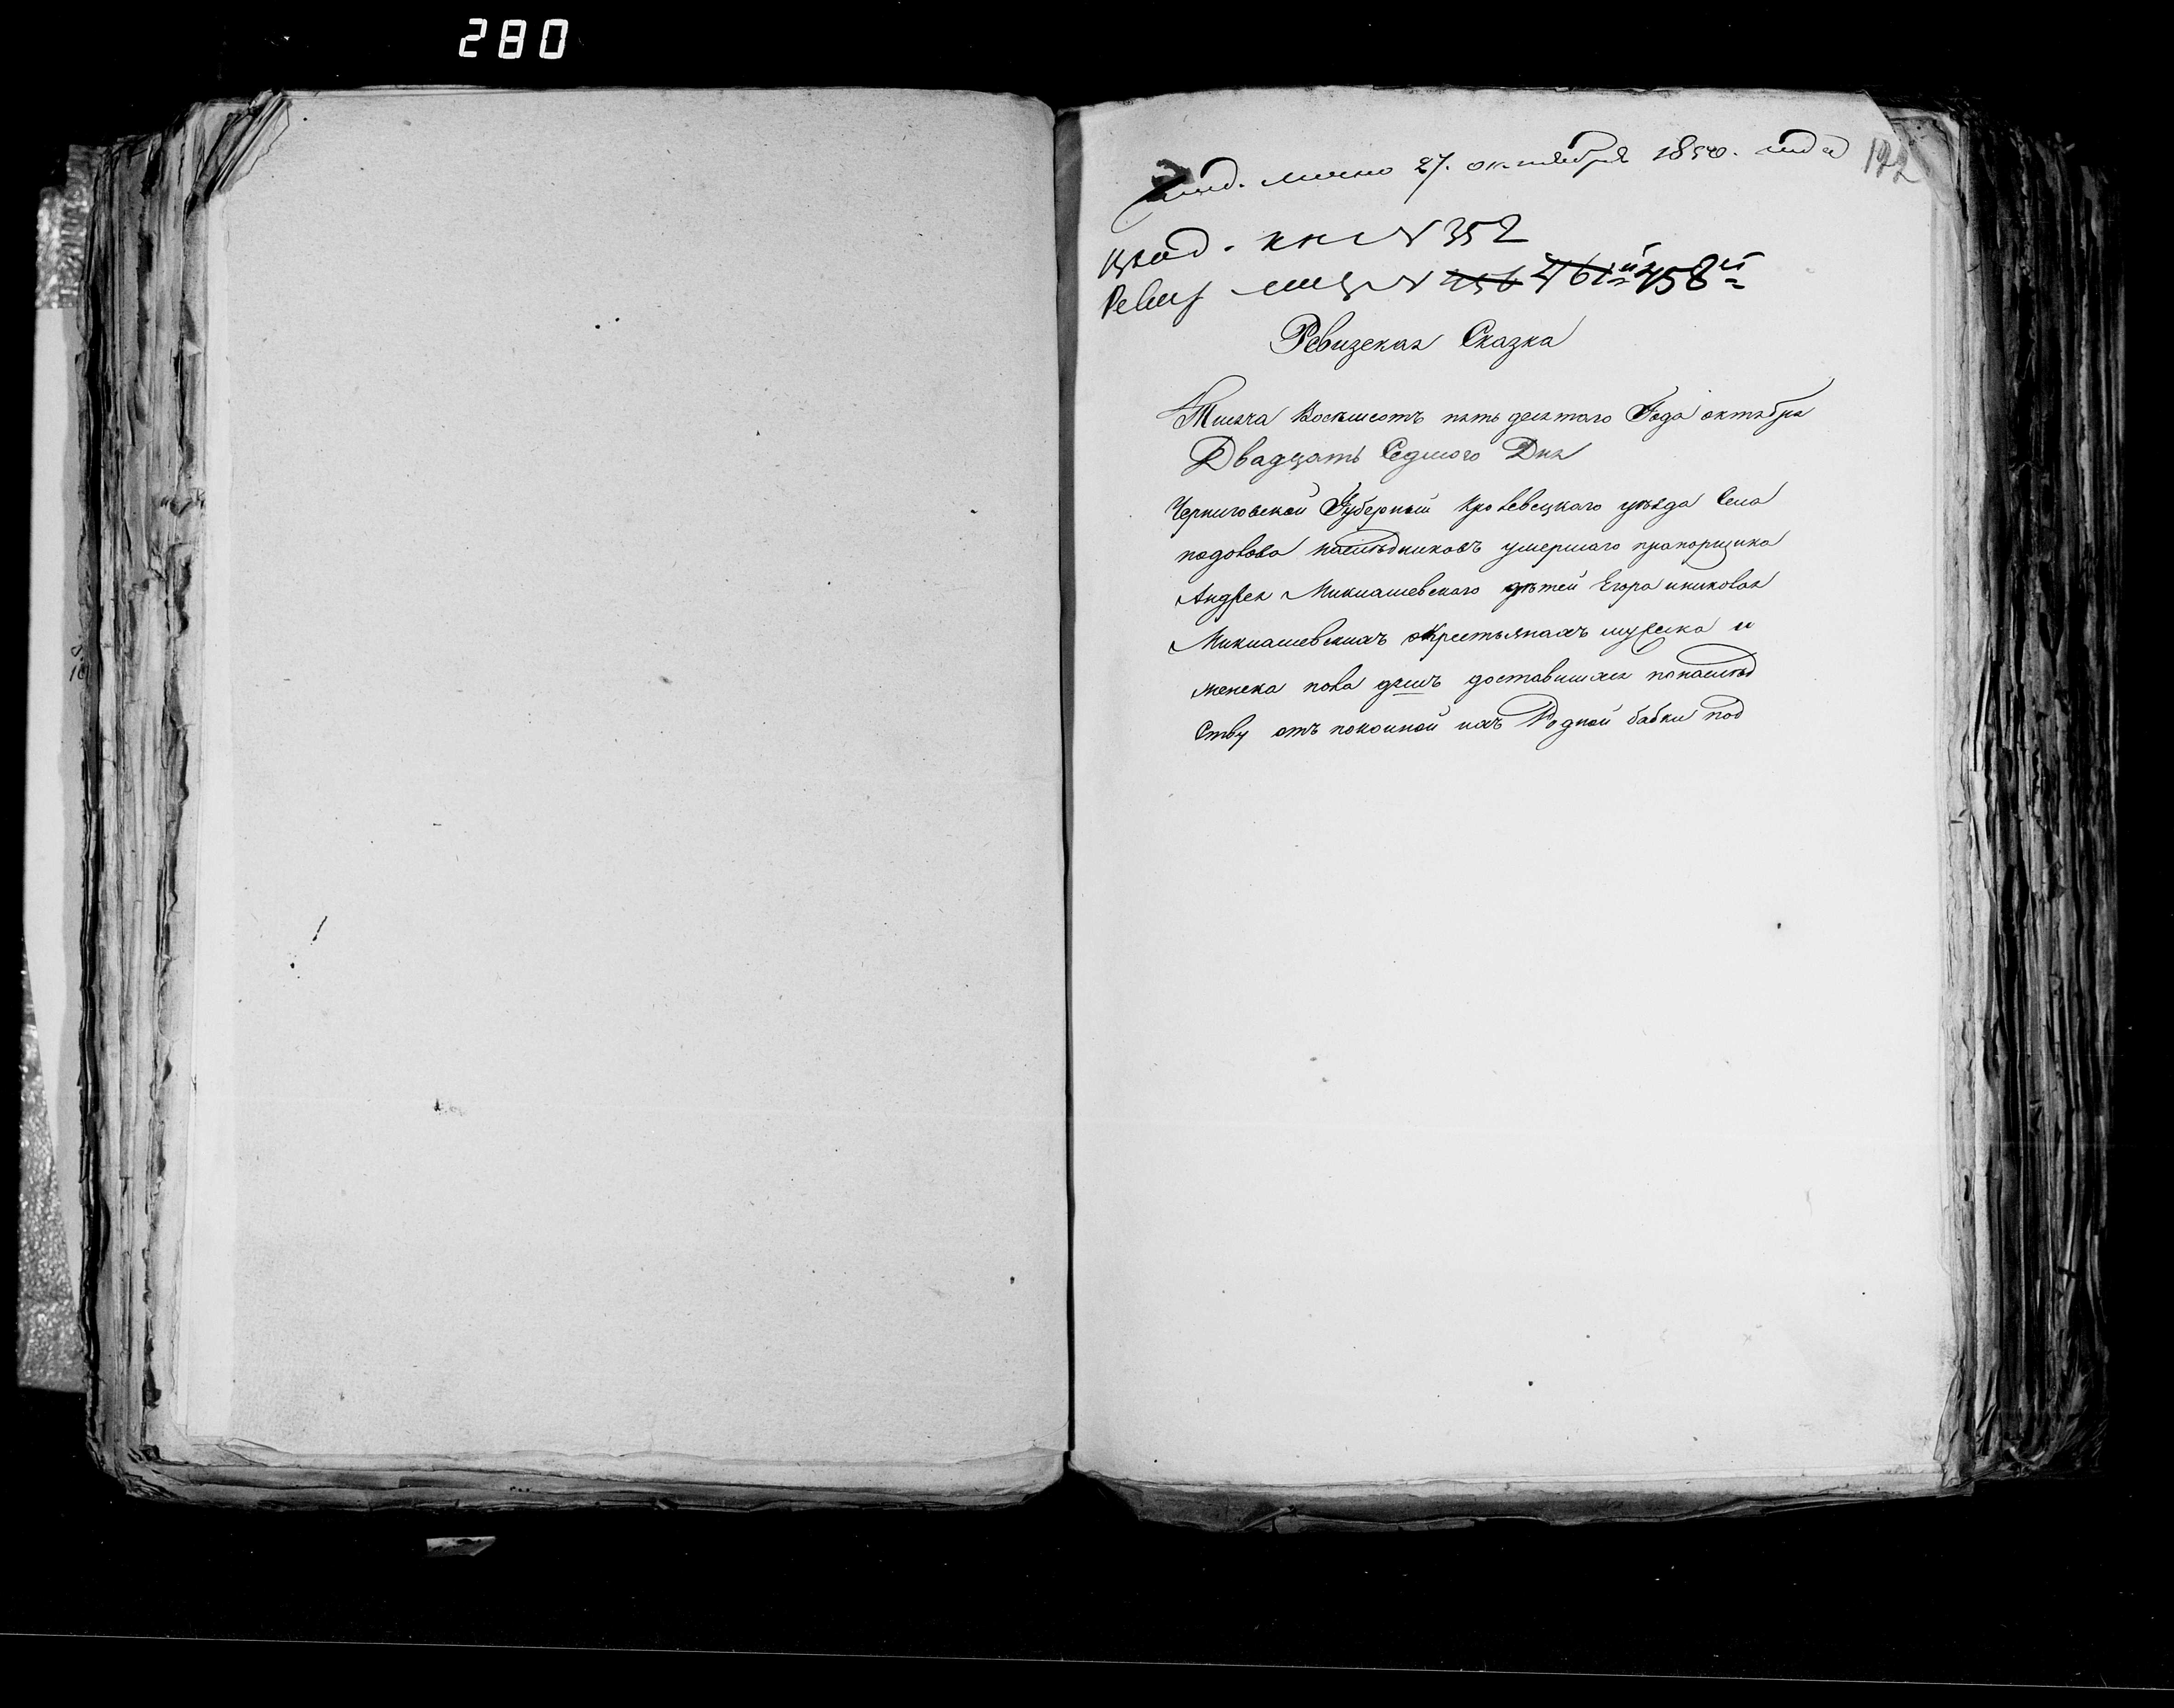 280
172
под. лично 27. октября 1850. года
Вход. кн № 352
Ревиз № 456 461й 458й
Ревизская Сказка
Тысяча Восемсотъ пять десятого Года октября
Двадцать Седмого Дня
Черниговской Губерныи Кролевецкаго уѣзда Села
подолова наслѣдниковъ умершаго прапорщика
Андрея Миклашевскаго дѣтей Егора иниколая
Миклашевскихъ окрестьянахъ мужеска и
женска пола душъ доставшихся понаслѣд
Ству отъ покойной ихъ Родной бабки под